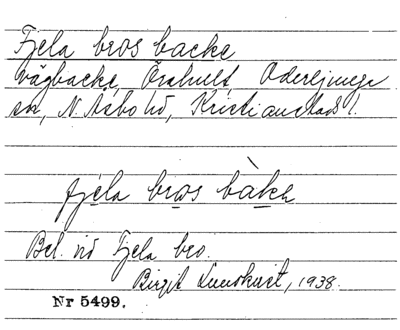 Fjela bros backe
vägbacke, Örahult, Oderljunga
sn, N. Åsbo hd, Kristianstads l.
fjela bros bàke
Bel. vid Fjela bro.
Birgit Lundkvist, 1938.
Nr 5499.